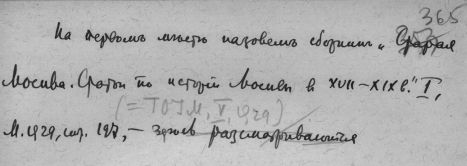 365
На первомъ мѣстѣ назовемъ сборникъ „Старая
Москва. Статьи по исторіи Москвы в XVII–XIX в." I,
(= ТОИМ, V, 1929)
М. 1929, стр. 197, – здесь рассматриваются